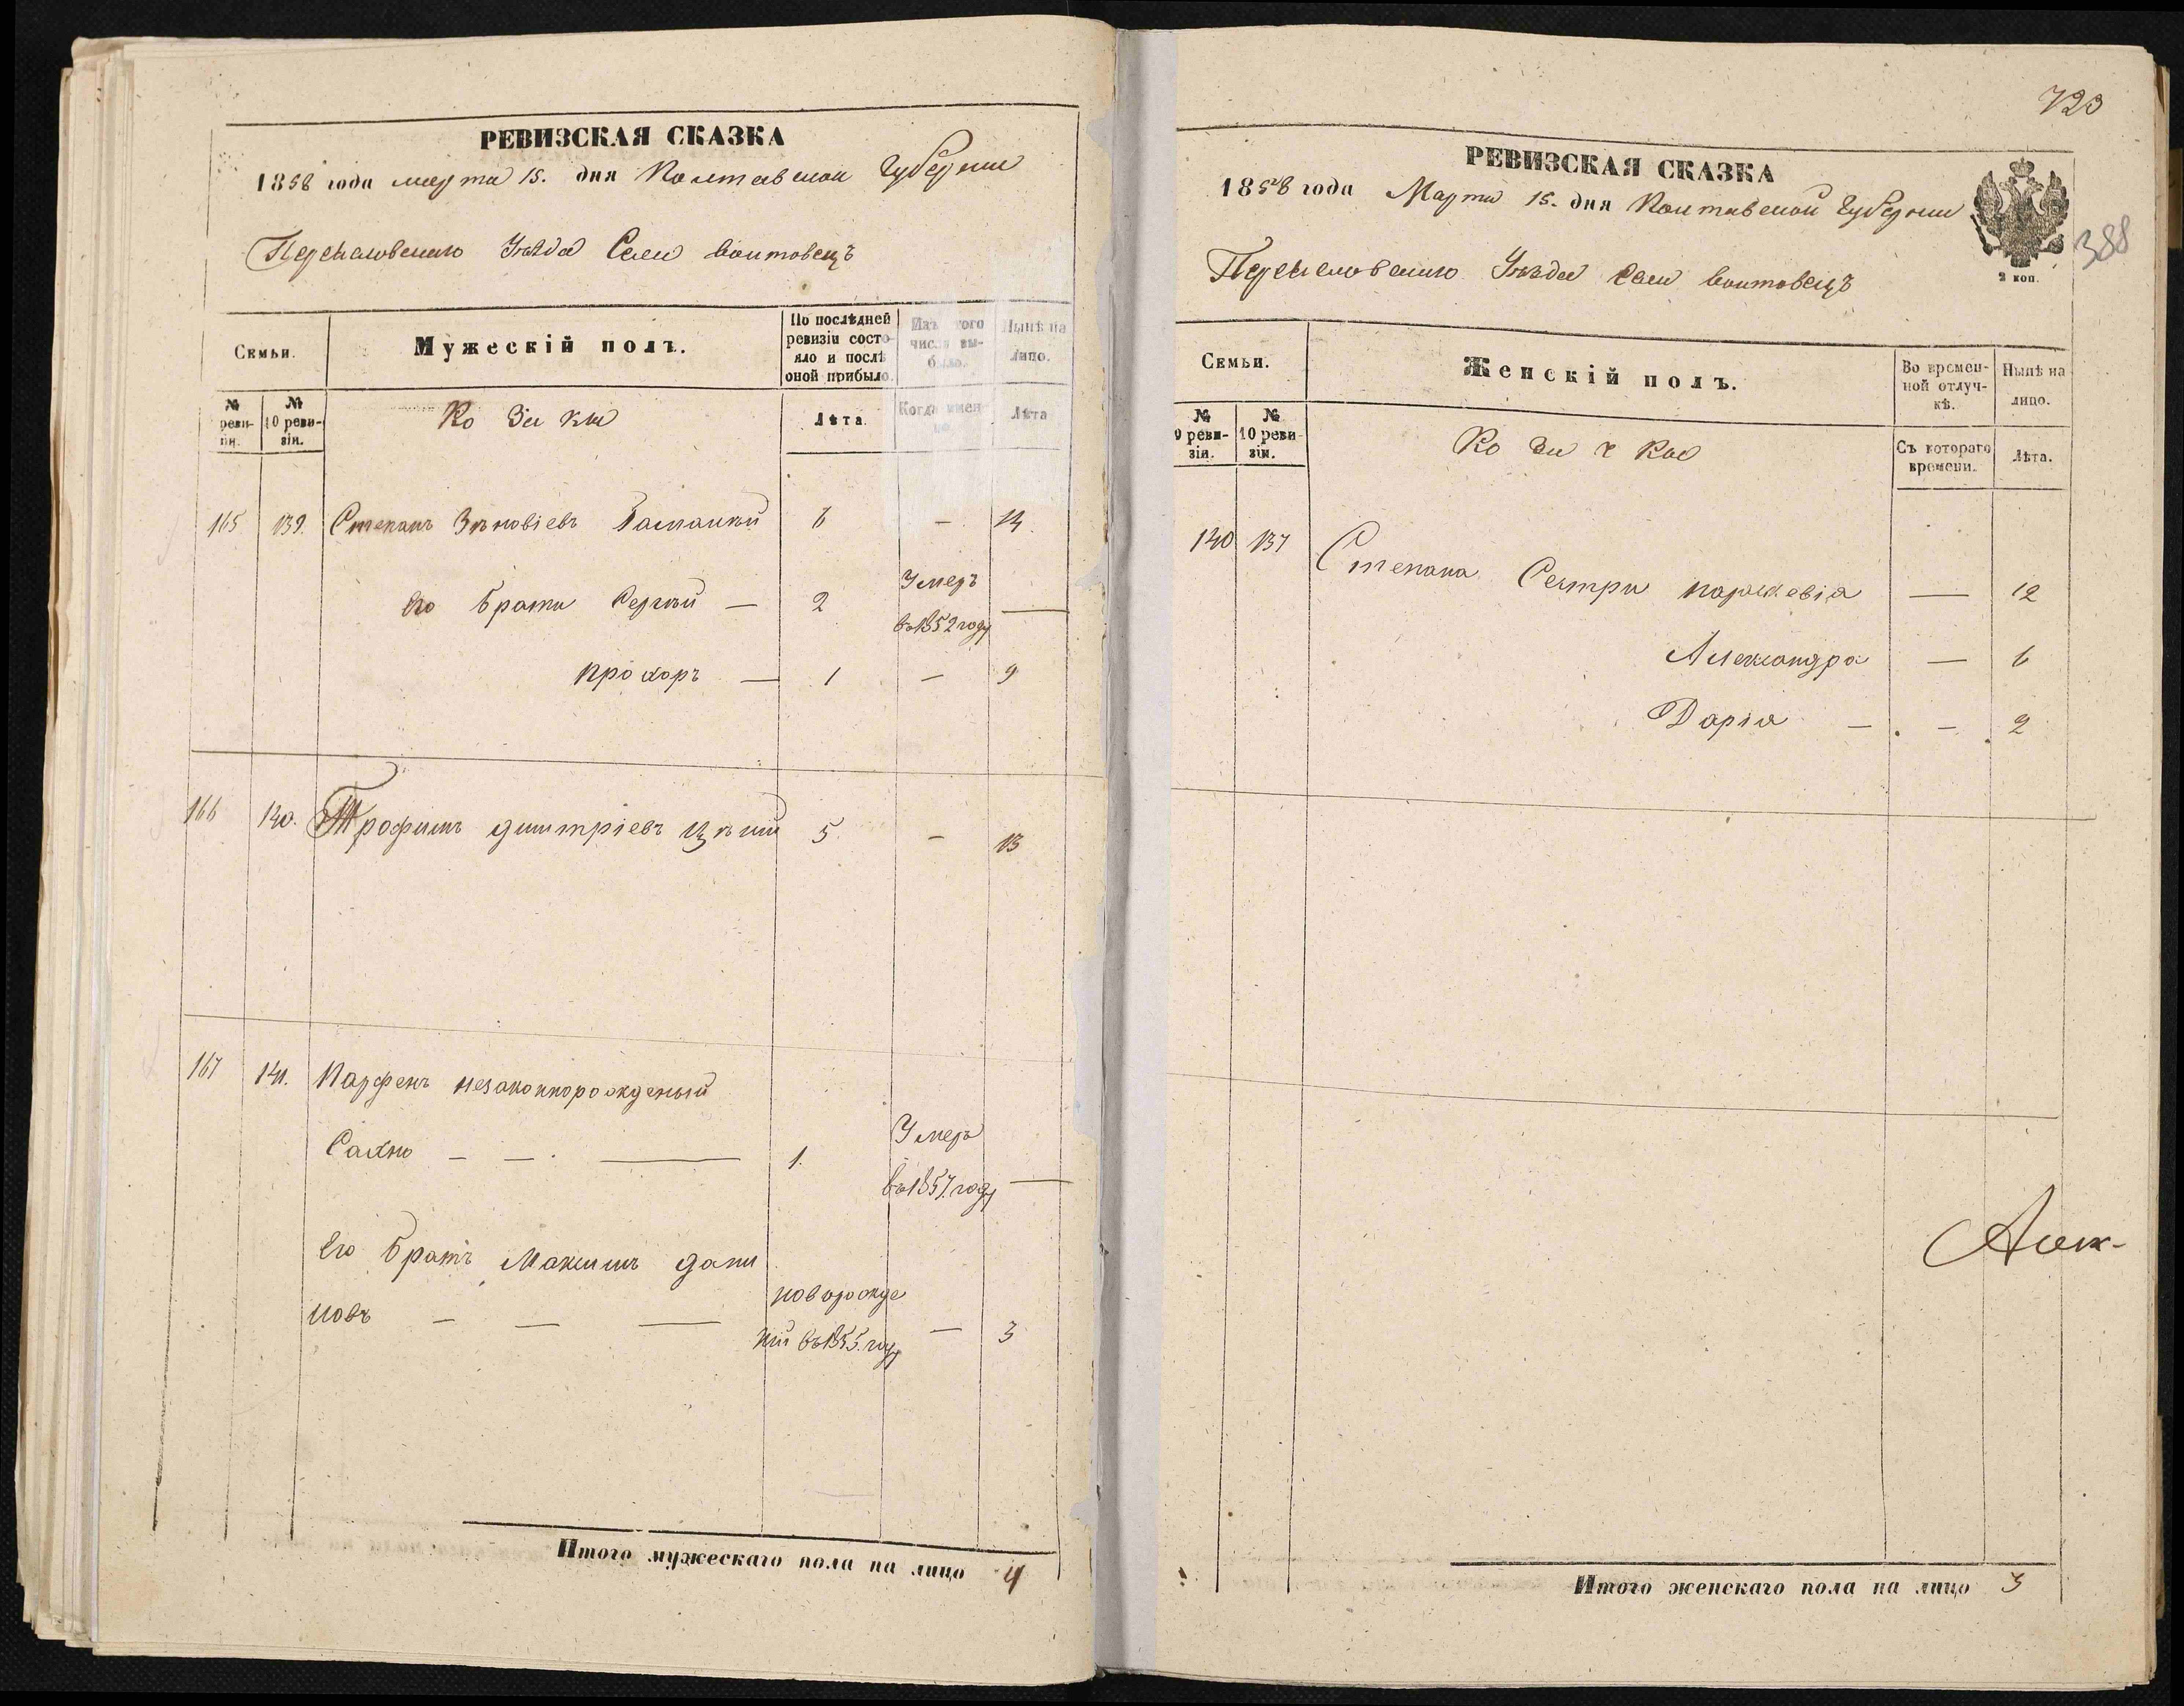 РЕВИЗСКАЯ СКАЗКА
1858 года марта 15. дня Полтавской Губернии
Переяславского Уезда Села Войтовецъ
Семьи.
Мужескій полъ.
По послѣдней ревизіи состояло и послѣ оной прибыло.
Изъ того числа выбыло.
Нынѣ на лицо.
№ реви-зіи.
№ 10 реви-зіи.
Козаки
Лѣта.
Когда имен-но.
Лѣта
165 139. Степанъ Зѣновіевъ 6 — 14.
Его брати Сергѣй — 2 Умеръ въ 1852 году —
Прохоръ — 1 — 9
166 140. Трофимъ Димитріевъ 5 — 13
167 141. Парфенъ незаконнорожденый
Сахно — — . — 1. Умеръ въ 1857. году —
Его братъ Максимъ Дани
ловъ — — — новорожде
ній въ 1855. году — 3
Итого мужескаго пола на лицо 4
723
388
РЕВИЗСКАЯ СКАЗКА
1858 года Марта 15. дня Полтавской Губернии
2 коп.
Переяславского Уѣзда Села Войтовецъ
Семьи.
Женскій полъ.
Во времен-ной отлуч-кѣ.
Нынѣ на лицо.
№ 9 реви-зіи.
№ 10 реви-зіи.
Козачки
Съ котораго времени.
Лѣта.
140 137 Степана Сестри Параскевія — 12
Александра — 6
Дарія — . — . 2
Итого женскаго пола на лицо 3